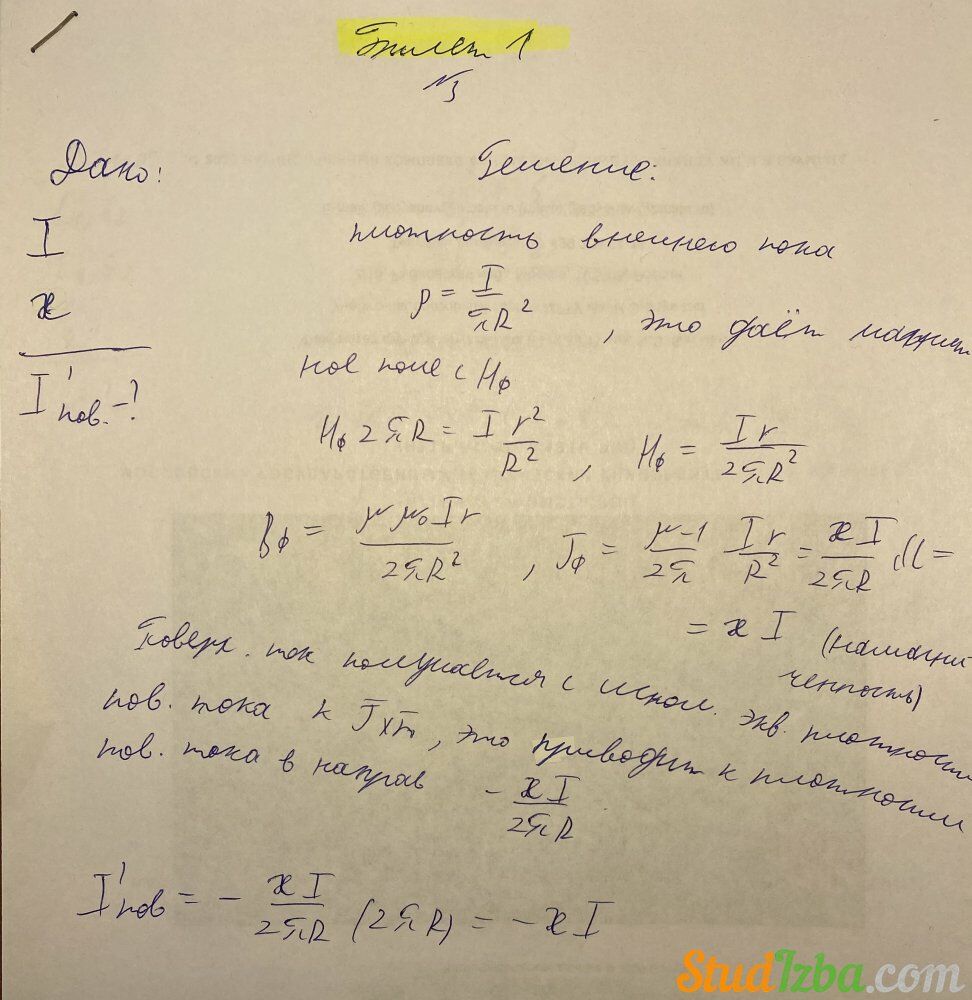 Билет 1
№3
Дано:
I
æ
I'пов. -?
Решение:
плотность внешнего тока
ρ = I/πR², это даёт магнит
ное поле с Hφ
Hφ 2πR = I r²/R², Hφ = Ir/2πR²
Bφ = μμ₀Ir/2πR², Jφ = μ-1/2π Ir/R² = æI/2πR
= æI (намагни
ченность)
Поверх. ток получается с испол. экв. плотности
пов. тока к J×n, это приводит к плотности
пов. тока в направ - æI/2πR
I'пов = - æI/2πR (2πR) = -æI
StudIzba.com